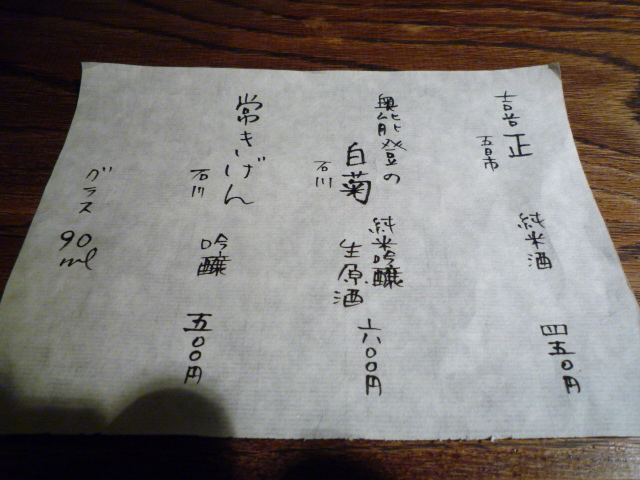 喜正
五日市
純米酒
四五〇円
奥能登の
白菊
石川
純米吟醸
生原酒
六〇〇円
常きげん
石川
吟醸
五〇〇円
グラス 90ml